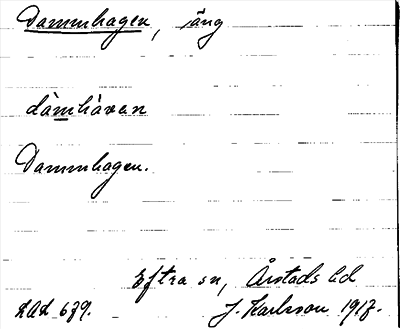 Dammhagen, äng
dàmhàven
Dammhagen.
Eftra sn, Årstads hd
LAL 679. J. Karlsson 1917.